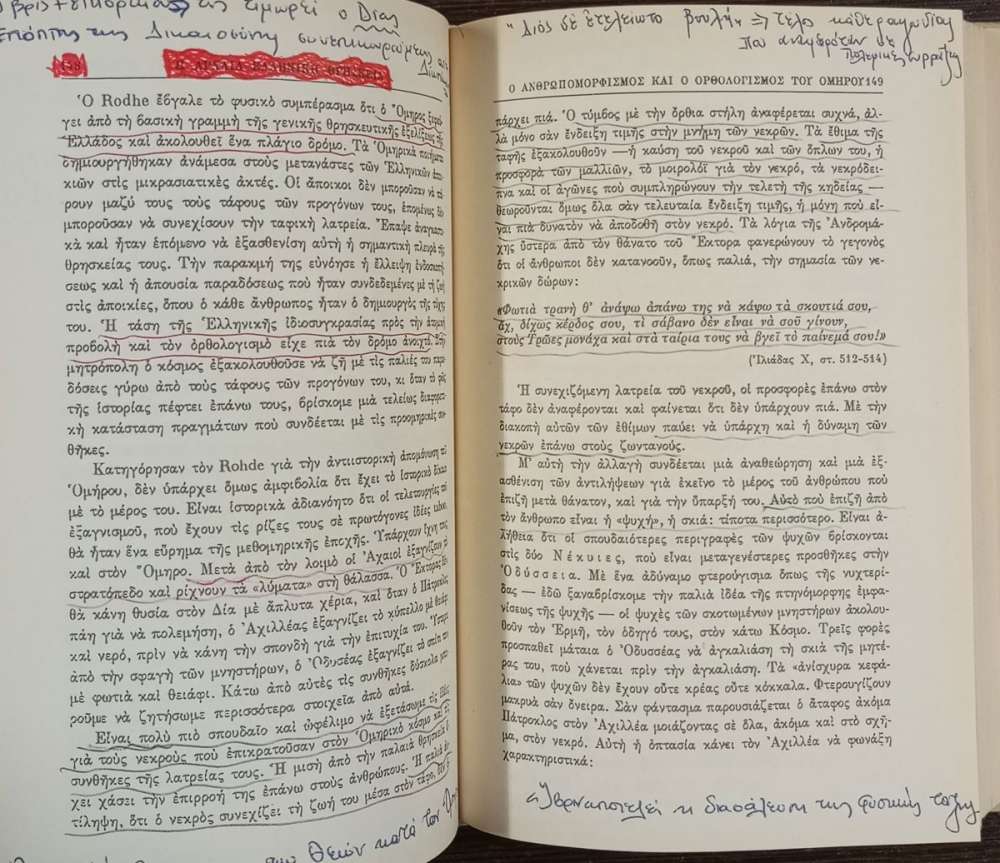 της τιμωρεί ο Δίας
Επόπτης της Δικαιοσύνης
Ὁ Rodhe ἔβγαλε τὸ φυσικὸ συμπέρασμα ὅτι ὁ Ὅμηρος
γει ἀπὸ τὴ βασικὴ γραμμὴ τῆς γενικῆς θρησκευτικῆς ἐξελίξεως τῆς
Ἑλλάδος καὶ ἀκολουθεῖ ἕνα πλάγιο δρόμο. Τὰ Ὁμηρικὰ ποιήματα
δημιουργήθηκαν ἀνάμεσα στοὺς μετανάστες τῶν Ἑλληνικῶν
κιῶν στὶς μικρασιατικὲς ἀκτές. Οἱ ἄποικοι δὲν μποροῦσαν νὰ
ρουν μαζύ τους τοὺς τάφους τῶν προγόνων τους, ἑπομένως δὲ
μποροῦσαν νὰ συνεχίσουν τὴν ταφικὴ λατρεία. Ἔπαψε
κὰ καὶ ἦταν ἑπόμενο νὰ ἐξασθενίση αὐτὴ ἡ σημαντικὴ πλευρὰ τῆς
θρησκείας τους. Τὴν παρακμή της εὐνόησε ἡ ἔλλειψη
σεως καὶ ἡ ἀπουσία παραδόσεως ποὺ ἦταν συνδεδεμένες μὲ τὴ ζωὴ
στὶς ἀποικίες, ὅπου ὁ κάθε ἄνθρωπος ἦταν ὁ δημιουργὸς τῆς τύχης
του. Ἡ τάση τῆς Ἑλληνικῆς ἰδιοσυγκρασίας πρὸς τὴν
προβολὴ καὶ τὸν ὀρθολογισμὸ εἶχε πιὰ τὸν δρόμο ἀνοιχτό. Στὴ
μητρόπολη ὁ κόσμος ἐξακολουθοῦσε νὰ ζῆ μὲ τὶς παλιές του παρα-
δόσεις γύρω ἀπὸ τοὺς τάφους τῶν προγόνων του, κι ὅταν τὸ φῶς
τῆς ἱστορίας πέφτει ἐπάνω τους, βρίσκομε μιὰ τελείως διαφορετι-
κὴ κατάσταση πραγμάτων ποὺ συνδέεται μὲ τὶς προομηρικὲς συν-
θῆκες.
Κατηγόρησαν τὸν Rohde γιὰ τὴν ἀντιιστορικὴ ἀπομόνωση τοῦ
Ὁμήρου, δὲν ὑπάρχει ὅμως ἀμφιβολία ὅτι ἔχει τὸ ἱστορικὸ δίκαιο
μὲ τὸ μέρος του. Εἶναι ἱστορικὰ ἀδιανόητο ὅτι οἱ τελετουργίες τοῦ
ἐξαγνισμοῦ, ποὺ ἔχουν τὶς ρίζες τους σὲ πρωτόγονες ἰδέες
θὰ ἦταν ἕνα εὕρημα τῆς μεθομηρικῆς ἐποχῆς. Ὑπάρχουν ἴχνη τους
καὶ στὸν Ὅμηρο. Μετὰ ἀπὸ τὸν λοιμὸ οἱ Ἀχαιοὶ ἐξαγνίζουν τὸ
στρατόπεδο καὶ ρίχνουν τὰ «λύματα» στὴ θάλασσα. Ὁ Ἕκτορας δὲν
θὰ κάνη θυσία στὸν Δία μὲ ἄπλυτα χέρια, καὶ ὅταν ὁ Πάτροκλος
πάη γιὰ νὰ πολεμήση, ὁ Ἀχιλλέας ἐξαγνίζει τὸ κύπελλο μὲ θειάφι
καὶ νερό, πρὶν νὰ κάνη τὴν σπονδὴ γιὰ τὴν ἐπιτυχία του. Ὕστερα
ἀπὸ τὴν σφαγὴ τῶν μνηστήρων, ὁ Ὀδυσέας ἐξαγνίζει τὸ σπίτι του
μὲ φωτιὰ καὶ θειάφι. Κάτω ἀπὸ αὐτὲς τὶς συνθῆκες δύσκολα μπο-
ροῦμε νὰ ζητήσωμε περισσότερα στοιχεῖα ἀπὸ αὐτά.
Εἶναι πολὺ πιὸ σπουδαῖο καὶ ὠφέλιμο νὰ ἐξετάσωμε τὶς ἰδέες
γιὰ τοὺς νεκροὺς ποὺ ἐπικρατοῦσαν στὸν Ὁμηρικὸ κόσμο καὶ τὶς
συνθῆκες τῆς λατρείας τους. Ἡ μισὴ ἀπὸ τὴν παλαιὰ θρησκεία
χει χάσει τὴν ἐπιρροή της ἐπάνω στοὺς ἀνθρώπους. Ἡ παλιὰ ἀν-
τίληψη, ὅτι ὁ νεκρὸς συνεχίζει τὴ ζωή του μέσα στὸν τάφο, δὲν ὑ-
Θεών κατά τον
"Διός δε ετελείετο βουλή" ⇒
Ο ΑΝΘΡΩΠΟΜΟΡΦΙΣΜΟΣ ΚΑΙ Ο ΟΡΘΟΛΟΓΙΣΜΟΣ ΤΟΥ ΟΜΗΡΟΥ 149
πάρχει πιά. Ὁ τύμβος μὲ τὴν ὄρθια στήλη ἀναφέρεται συχνά, ἀλ-
λὰ μόνο σὰν ἔνδειξη τιμῆς στὴν μνήμη τῶν νεκρῶν. Τὰ ἔθιμα τῆς
ταφῆς ἐξακολουθοῦν —ἡ καύση τοῦ νεκροῦ καὶ τῶν ὅπλων του, ἡ
προσφορὰ τῶν μαλλιῶν, τὸ μοιρολόϊ γιὰ τὸν νεκρό, τὰ νεκρόδει-
πνα καὶ οἱ ἀγῶνες ποὺ συμπληρώνουν τὴν τελετὴ τῆς κηδείας —
θεωροῦνται ὅμως ὅλα σὰν τελευταία ἔνδειξη τιμῆς, ἡ μόνη ποὺ εἶ-
ναι πιὰ δυνατὸν νὰ ἀποδοθῆ στὸν νεκρό. Τὰ λόγια τῆς Ἀνδρομά-
χης ὕστερα ἀπὸ τὸν θάνατο τοῦ Ἕκτορα φανερώνουν τὸ γεγονὸς
ὅτι οἱ ἄνθρωποι δὲν κατανοοῦν, ὅπως παλιά, τὴν σημασία τῶν νε-
κρικῶν δώρων:
«Φωτιὰ τρανὴ θ' ἀνάψω ἀπάνω της νὰ κάψω τὰ σκουτιά σου,
ἄχ, δίχως κέρδος σου, τὶ σάβανο δὲν εἶναι νὰ σοῦ γίνουν,
στοὺς Τρῶες μονάχα καὶ στὰ ταίρια τους νὰ βγεῖ τὸ παίνεμά σου!»
(Ἰλιάδας Χ, στ. 512-514)
Ἡ συνεχιζόμενη λατρεία τοῦ νεκροῦ, οἱ προσφορὲς ἐπάνω στὸν
τάφο δὲν ἀναφέρονται καὶ φαίνεται ὅτι δὲν ὑπάρχουν πιά. Μὲ τὴν
διακοπὴ αὐτῶν τῶν ἐθίμων παύει νὰ ὑπάρχη καὶ ἡ δύναμη τῶν
νεκρῶν ἐπάνω στοὺς ζωντανούς.
Μ' αὐτὴ τὴν ἀλλαγὴ συνδέεται μιὰ ἀναθεώρηση καὶ μιὰ ἐξ-
ασθένιση τῶν ἀντιλήψεων γιὰ ἐκεῖνο τὸ μέρος τοῦ ἀνθρώπου ποὺ
ἐπιζῆ μετὰ θάνατον, καὶ γιὰ τὴν ὕπαρξή του. Αὐτὸ ποὺ ἐπιζῆ ἀπὸ
τὸν ἄνθρωπο εἶναι ἡ «ψυχή», ἡ σκιά: τίποτα περισσότερο. Εἶναι ἀ-
λήθεια ὅτι οἱ σπουδαιότερες περιγραφὲς τῶν ψυχῶν βρίσκονται
στὶς δύο Νέκυιες, ποὺ εἶναι μεταγενέστερες προσθῆκες στὴν
Ὀδύσσεια. Μὲ ἕνα ἀδύναμο φτερούγισμα ὅπως τῆς νυχτερί-
δας — ἐδῶ ξαναβρίσκομε τὴν παλιὰ ἰδέα τῆς πτηνόμορφης ἐμφα-
νίσεως τῆς ψυχῆς — οἱ ψυχὲς τῶν σκοτωμένων μνηστήρων ἀκολου-
θοῦν τὸν Ἑρμῆ, τὸν ὁδηγό τους, στὸν κάτω Κόσμο. Τρεῖς φορὲς
προσπαθεῖ μάταια ὁ Ὀδυσσέας νὰ ἀγκαλιάση τὴ σκιὰ τῆς μητέ-
ρας του, ποὺ χάνεται πρὶν τὴν ἀγκαλιάση. Τὰ «ἀνίσχυρα κεφά-
λια» τῶν ψυχῶν δὲν ἔχουν οὔτε κρέας οὔτε κόκκαλα. Φτερουγίζουν
μακρυὰ σὰν ὄνειρα. Σὰν φάντασμα παρουσιάζεται ὁ ἄταφος ἀκόμα
Πάτροκλος στὸν Ἀχιλλέα μοιάζοντας σὲ ὅλα, ἀκόμα καὶ στὸ σχῆ-
μα, στὸν νεκρό. Αὐτὴ ἡ ὀπτασία κάνει τὸν Ἀχιλλέα νὰ φωνάξη
χαρακτηριστικά:
η διασάλευση της φυσικής τάξης